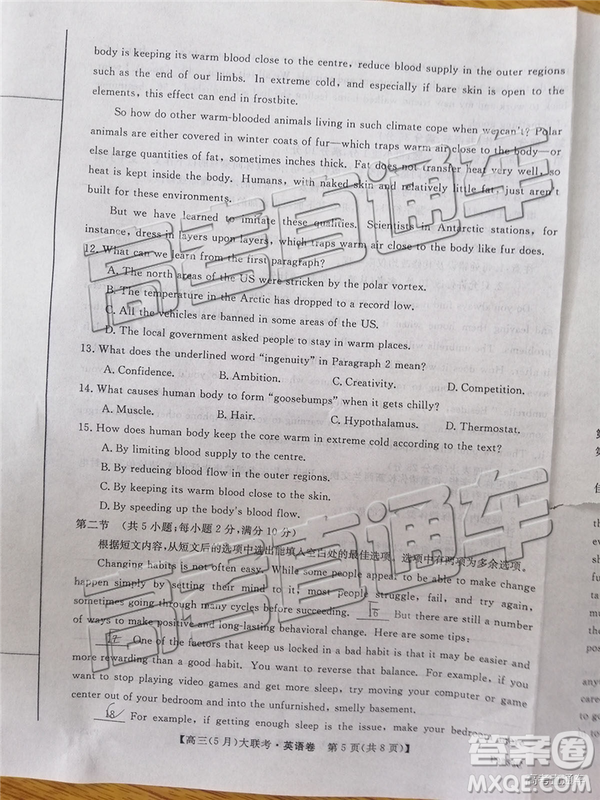 body is keeping its warm blood close to the centre, reduce blood supply in the outer regions
such as the end of our limbs. In extreme cold, and especially if bare skin is open to the
elements, this effect can end in frostbite.
So how do other warm-blooded animals living in such climate cope when we can't? Polar
animals are either covered in winter coats of fur—which traps warm air close to the body—or
else large quantities of fat, sometimes inches thick. Fat does not transfer heat very well, so
heat is kept inside the body. Humans, with naked skin and relatively little fat, just aren't
built for these environments.
But we have learned to imitate these qualities. Scientists in Antarctic stations, for
instance, dress in layers upon layers, which traps warm air close to the body like fur does.
12. What can we learn from the first paragraph?
A. The north areas of the US were stricken by the polar vortex.
B. The temperature in Arctic has dropped to a record low.
C. All the vehicles are banned in some areas of the US.
D. The local government asked people to stay in warm places.
13. What does the underlined word "ingenuity" in Paragraph 2 mean?
A. Confidence. B. Ambition. C. Creativity. D. Competition.
14. What causes human body to form "goosebumps" when it gets chilly?
A. Muscle. B. Hair. C. Hypothalamus. D. Thermostat.
15. How does human body keep the core warm in extreme cold according to the text?
A. By limiting blood supply to the centre.
B. By reducing blood flow in the outer regions.
C. By keeping warm blood close to the skin.
D. By speeding up the body's blood flow.
第二节 (共5小题;每小题2分,满分10分)
根据短文内容,从短文后的选项中选出能填入空白处的最佳选项。选项中有两项为多余选项。
Changing habits is not often easy. While some people appear to be able to make change
happen simply by setting their mind to it, most people struggle, fail, and try again,
sometimes going through many cycles before succeeding. 16 But there are still a number
of ways to make positive and long-lasting behavioral change. Here are some tips:
17 One of the factors that keep us locked in a bad habit is that it may be easier and
more rewarding than a good habit. You want to reverse that balance. For example, if you
want to stop playing video games and get more sleep, try moving your computer or game
center out of your bedroom and into the unfurnished, smelly basement.
18 For example, if getting enough sleep is your goal, start by
【高三(5月)大联考·英语卷 第5页(共8页)】
高考直通车
高考直通车
答案圈